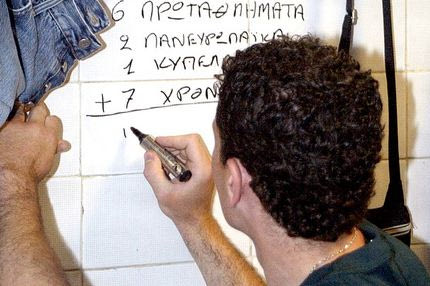 6 ΠΡΩΤΑΘΛΗΜΑΤΑ
2 ΠΑΝΕΥΡΩΠΑΪΚΑ
1 ΚΥΠΕΛ
+ 7 ΧΡΟΝ
1